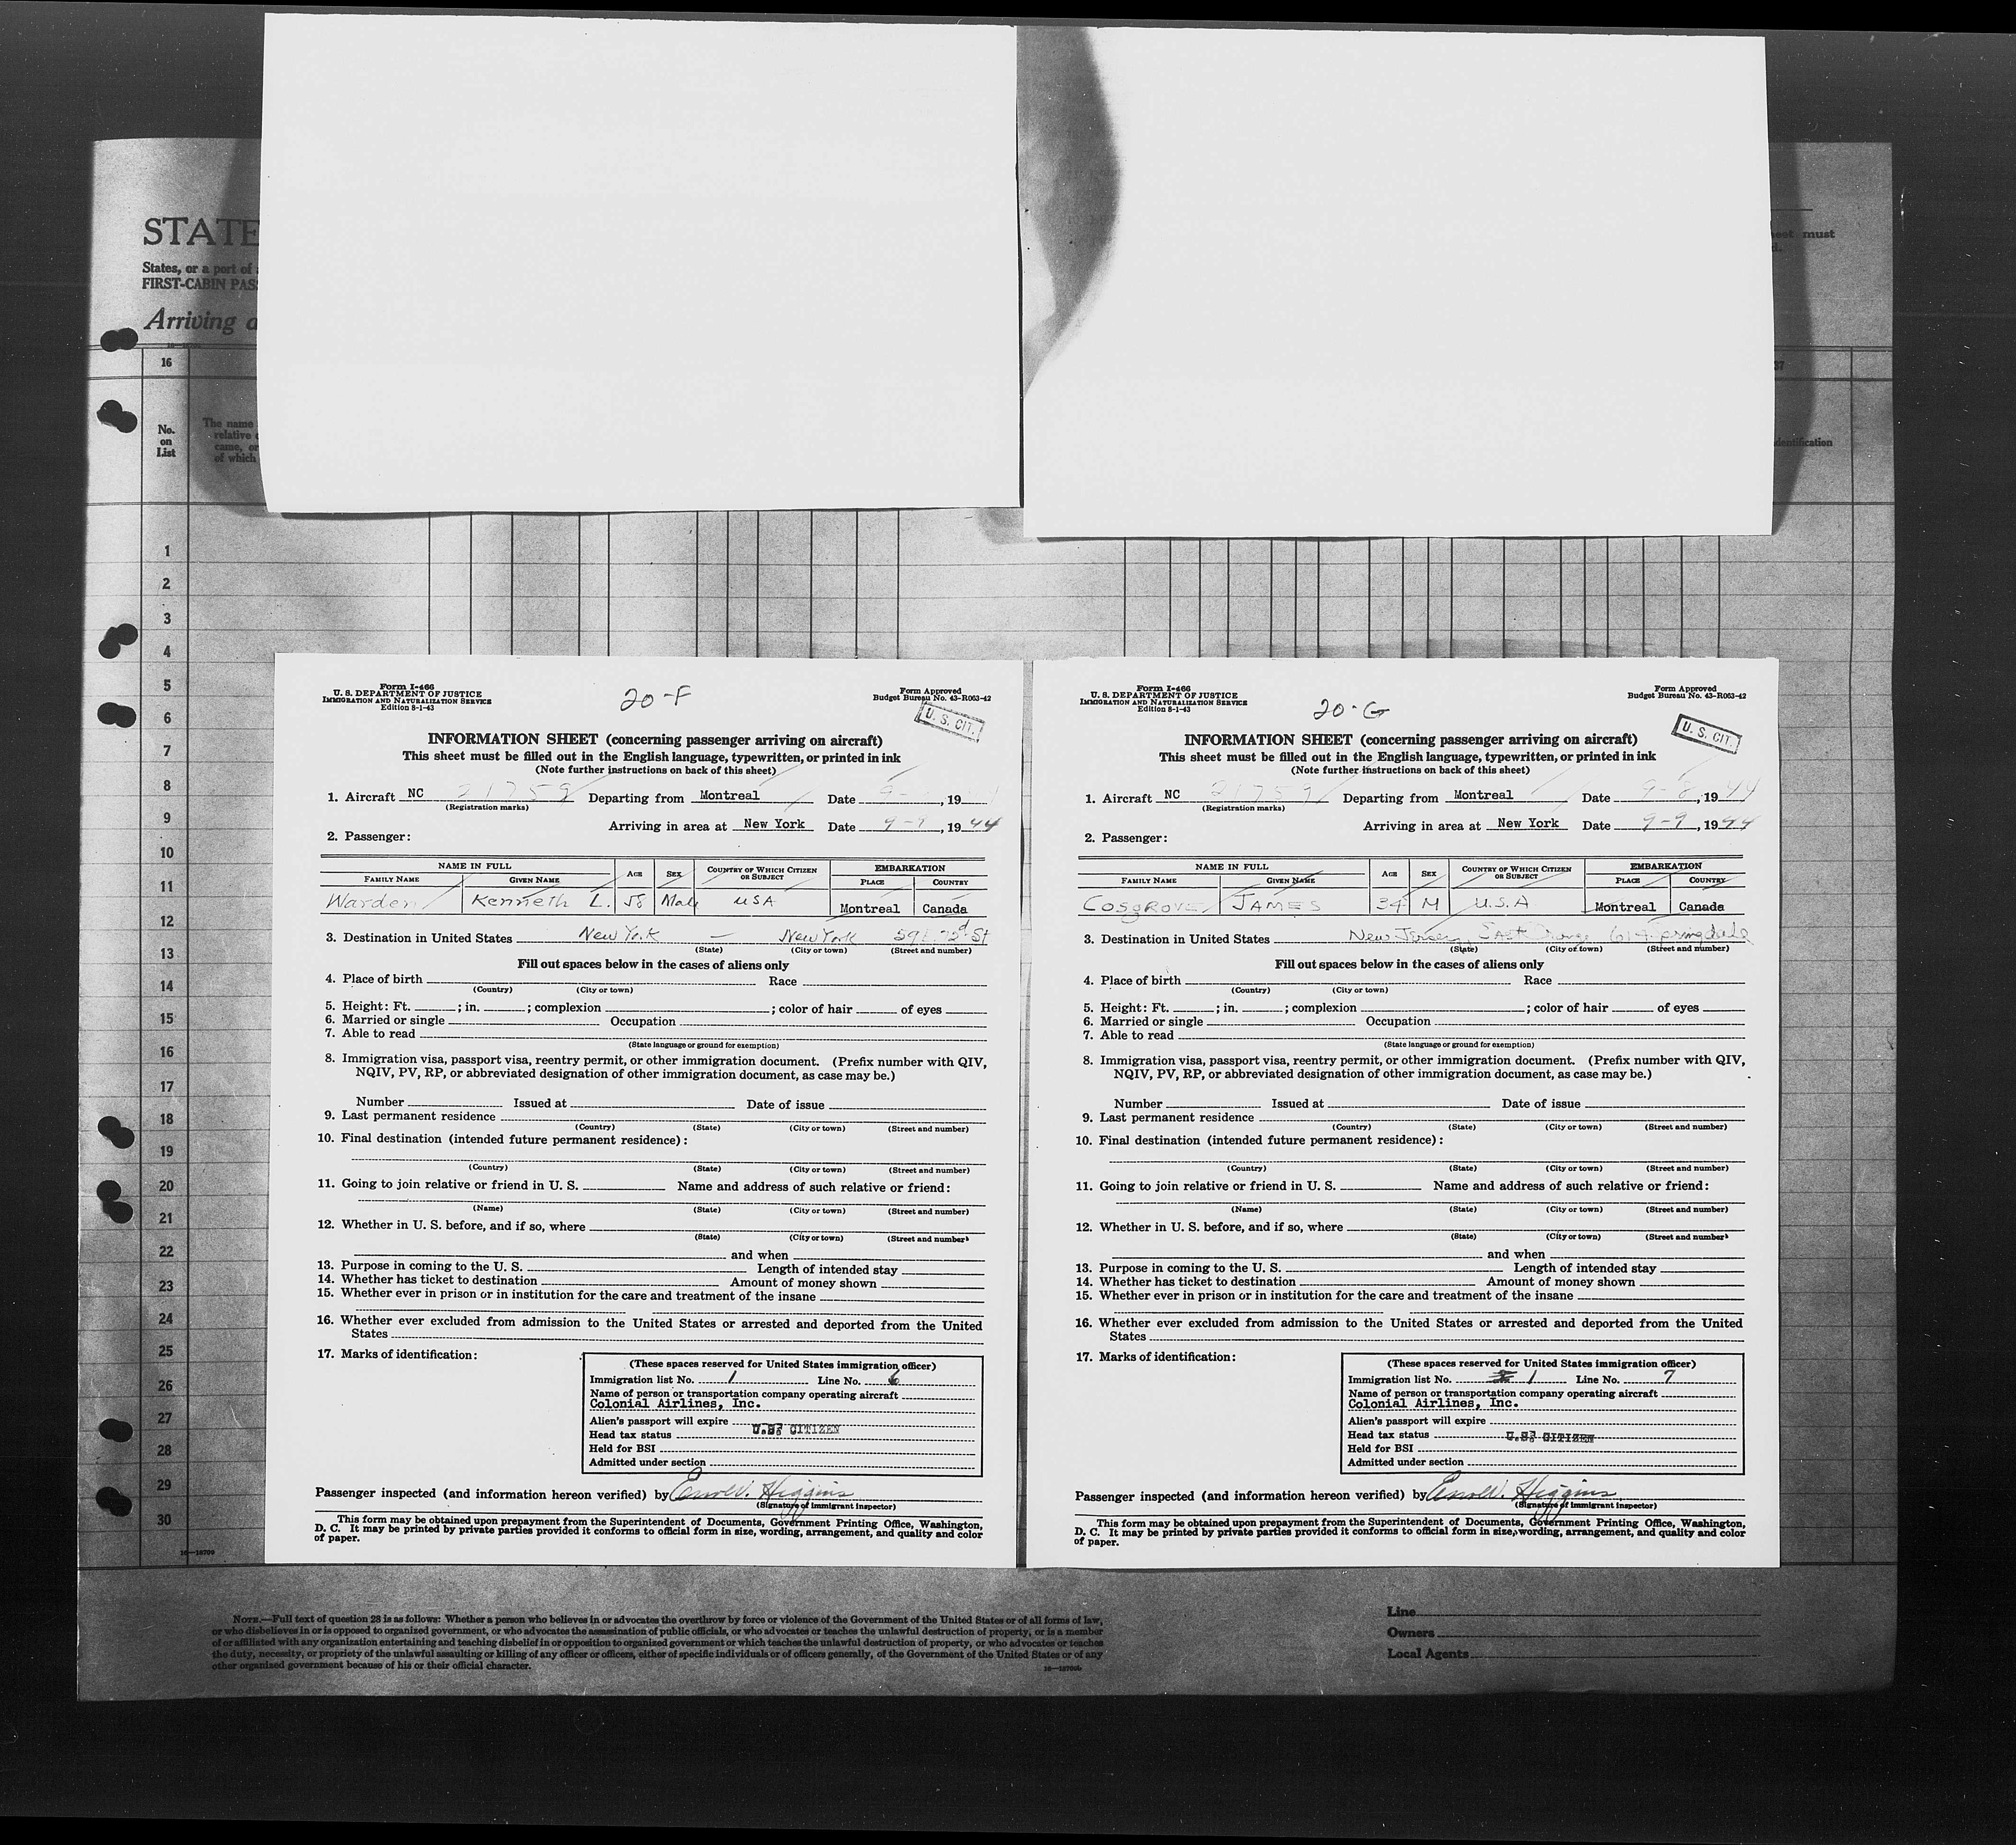 STATE
States, or a port of
FIRST-CABIN PAS
Arriving a
eet must
d.
16
37
No.
on
List
The name
relative
came, or
of which
identification
1
2
3
4
5
6
7
8
9
10
11
12
13
14
15
16
17
18
19
20
21
22
23
24
25
26
27
28
29
30
Form I-466
U. S. DEPARTMENT OF JUSTICE
IMMIGRATION AND NATURALIZATION SERVICE
Edition 8-1-43
20-F
Form Approved
Budget Bureau No. 43-R063-42
U. S. CIT.
INFORMATION SHEET (concerning passenger arriving on aircraft)
This sheet must be filled out in the English language, typewritten, or printed in ink
(Note further instructions on back of this sheet)
1. Aircraft NC 21759 Departing from Montreal Date 9- , 19
(Registration marks)
Arriving in area at New York Date 9-9, 1944
2. Passenger:
NAME IN FULL AGE SEX COUNTRY OF WHICH CITIZEN OR SUBJECT EMBARKATION
FAMILY NAME GIVEN NAME PLACE COUNTRY
Warden Kenneth L. 58 Male USA Montreal Canada
3. Destination in United States New York — New York 72d St
(State) (City or town) (Street and number)
Fill out spaces below in the cases of aliens only
4. Place of birth Race
(Country) (City or town)
5. Height: Ft. ; in. ; complexion ; color of hair of eyes
6. Married or single Occupation
7. Able to read
(State language or ground for exemption)
8. Immigration visa, passport visa, reentry permit, or other immigration document. (Prefix number with QIV,
NQIV, PV, RP, or abbreviated designation of other immigration document, as case may be.)
Number Issued at Date of issue
9. Last permanent residence
(Country) (State) (City or town) (Street and number)
10. Final destination (intended future permanent residence):
(Country) (State) (City or town) (Street and number)
11. Going to join relative or friend in U. S. Name and address of such relative or friend:
(Name) (State) (City or town) (Street and number)
12. Whether in U. S. before, and if so, where
(State) (City or town) (Street and number)
and when
13. Purpose in coming to the U. S. Length of intended stay
14. Whether has ticket to destination Amount of money shown
15. Whether ever in prison or in institution for the care and treatment of the insane
16. Whether ever excluded from admission to the United States or arrested and deported from the United
States
17. Marks of identification:
(These spaces reserved for United States immigration officer)
Immigration list No. 1 Line No. 6
Name of person or transportation company operating aircraft
Colonial Airlines, Inc.
Alien's passport will expire
Head tax status U.S. CITIZEN
Held for BSI
Admitted under section
Passenger inspected (and information hereon verified) by Higgins
(Signature of immigrant inspector)
This form may be obtained upon prepayment from the Superintendent of Documents, Government Printing Office, Washington,
D. C. It may be printed by private parties provided it conforms to official form in size, wording, arrangement, and quality and color
of paper.
Form I-466
U. S. DEPARTMENT OF JUSTICE
IMMIGRATION AND NATURALIZATION SERVICE
Edition 8-1-43
20-G
Form Approved
Budget Bureau No. 43-R063-42
U. S. CIT.
INFORMATION SHEET (concerning passenger arriving on aircraft)
This sheet must be filled out in the English language, typewritten, or printed in ink
(Note further instructions on back of this sheet)
1. Aircraft NC 21759 Departing from Montreal Date 9-8, 1944
(Registration marks)
Arriving in area at New York Date 9-9, 1944
2. Passenger:
NAME IN FULL AGE SEX COUNTRY OF WHICH CITIZEN OR SUBJECT EMBARKATION
FAMILY NAME GIVEN NAME PLACE COUNTRY
COSGROVE JAMES 34 M U.S.A Montreal Canada
3. Destination in United States New Jersey, East Orange 614 Springdale
(State) (City or town) (Street and number)
Fill out spaces below in the cases of aliens only
4. Place of birth Race
(Country) (City or town)
5. Height: Ft. ; in. ; complexion ; color of hair of eyes
6. Married or single Occupation
7. Able to read
(State language or ground for exemption)
8. Immigration visa, passport visa, reentry permit, or other immigration document. (Prefix number with QIV,
NQIV, PV, RP, or abbreviated designation of other immigration document, as case may be.)
Number Issued at Date of issue
9. Last permanent residence
(Country) (State) (City or town) (Street and number)
10. Final destination (intended future permanent residence):
(Country) (State) (City or town) (Street and number)
11. Going to join relative or friend in U. S. Name and address of such relative or friend:
(Name) (State) (City or town) (Street and number)
12. Whether in U. S. before, and if so, where
(State) (City or town) (Street and number)
and when
13. Purpose in coming to the U. S. Length of intended stay
14. Whether has ticket to destination Amount of money shown
15. Whether ever in prison or in institution for the care and treatment of the insane
16. Whether ever excluded from admission to the United States or arrested and deported from the United
States
17. Marks of identification:
(These spaces reserved for United States immigration officer)
Immigration list No. 1 Line No. 7
Name of person or transportation company operating aircraft
Colonial Airlines, Inc.
Alien's passport will expire
Head tax status U.S. CITIZEN
Held for BSI
Admitted under section
Passenger inspected (and information hereon verified) by Higgins
(Signature of immigrant inspector)
This form may be obtained upon prepayment from the Superintendent of Documents, Government Printing Office, Washington,
D. C. It may be printed by private parties provided it conforms to official form in size, wording, arrangement, and quality and color
of paper.
NOTE.—Full text of question 28 is as follows: Whether a person who believes in or advocates the overthrow by force or violence of the Government of the United States or of all forms of law,
or who disbelieves in or is opposed to organized government, or who advocates the assassination of public officials, or who advocates or teaches the unlawful destruction of property, or is a member
of or affiliated with any organization entertaining and teaching disbelief in or opposition to organized government or which teaches the unlawful destruction of property, or who advocates or teaches
the duty, necessity, or propriety of the unlawful assaulting or killing of any officer or officers, either of specific individuals or of officers generally, of the Government of the United States or of any
other organized government because of his or their official character.
Line
Owners
Local Agents